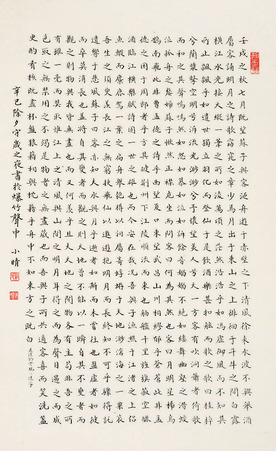 壬戌之秋七月既望蘇子與客泛舟遊於赤壁之下清風徐來水波不興舉酒
屬客誦明月之詩歌窈窕之章少焉月出於東山之上徘徊於斗牛之間白露
橫江水光接天縱一葦之所如凌萬頃之茫然浩浩乎如馮虛御風而不知其
所止飄飄乎如遺世獨立羽化而登仙於是飲酒樂甚扣舷而歌之歌曰桂棹
兮蘭槳擊空明兮泝流光渺渺兮予懷望美人兮天一方客有吹洞簫者倚歌
而和之其聲嗚嗚然如怨如慕如泣如訴餘音嫋嫋不絕如縷舞幽壑之潛蛟
泣孤舟之嫠婦蘇子愀然正襟危坐而問客曰何為其然也客曰月明星稀烏
鵲南飛此非曹孟德之詩乎西望夏口東望武昌山川相繆鬱乎蒼蒼此非孟
德之困於周郎者乎方其破荊州下江陵順流而東也舳艫千里旌旗蔽空釃
酒臨江橫槊賦詩固一世之雄也而今安在哉況吾與子漁樵於江渚之上侶
魚蝦而友麋鹿駕一葉之扁舟舉匏樽以相屬寄蜉蝣於天地渺滄海之一粟哀
吾生之須臾羨長江之無窮挾飛仙以遨遊抱明月而長終知不可乎驟得託
遺響於悲風蘇子曰客亦知夫水與月乎逝者如斯而未嘗往也盈虛者如彼
而卒莫消長也蓋將自其變者而觀之則天地曾不能以一瞬自其不變者而
觀之則物與我皆無盡也而又何羨乎且夫天地之間物各有主苟非吾之所
有雖一毫而莫取惟江上之清風與山間之明月耳得之而為聲目遇之而成
色取之無禁用之不竭是造物者之無盡藏也而吾與子之所共適客喜而笑洗盞
更酌肴核既盡杯盤狼藉相與枕藉乎舟中不知東方之既白
辛巳除夕守歲之夜書於爆竹聲中 小晴